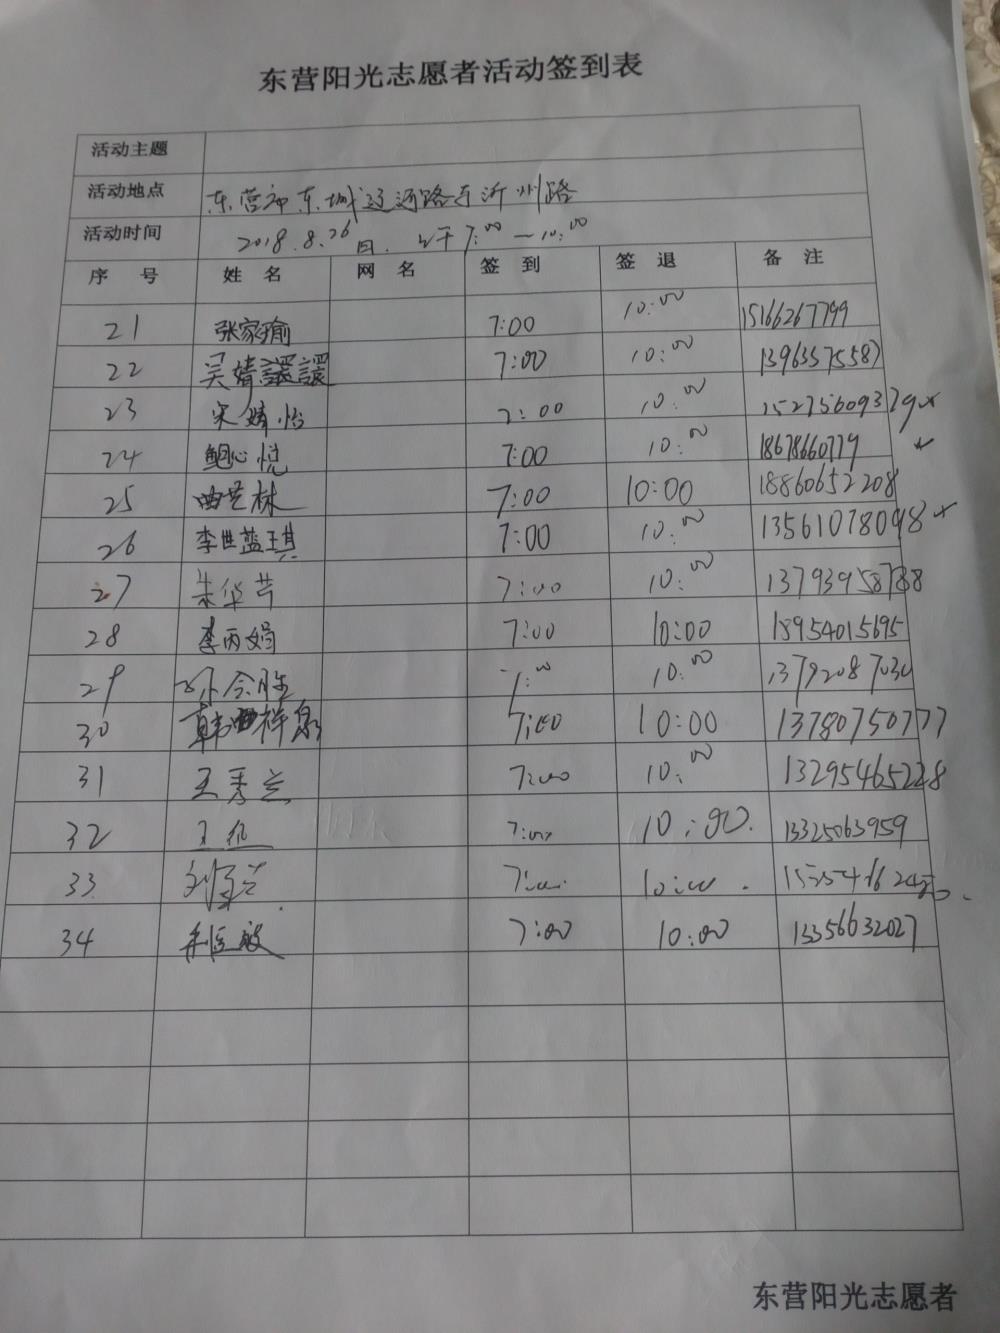 东营阳光志愿者活动签到表
活动主题
活动地点 东营市东城辽河路与沂州路
活动时间 2018.8.26日. 上午7:00—10:00
序号 姓名 网名 签到 签退 备注
21 张家瑜 7:00 10:00 15166267799
22 吴婧譞 7:00 10:00 13963575587
23 宋婧怡 7:00 10:00 15275609379
24 鲍心悦 7:00 10:00 18678660779
25 曲芒林 7:00 10:00 18860652208
26 李世蓝琪 7:00 10:00 13561078098
27 朱华芹 7:00 10:00 13793958788
28 李丙娟 7:00 10:00 18954015695
29 7:00 10:00
30 韩梓泉 7:00 10:00 13780750777
31 王秀兰 7:00 10:00 13295465228
32 7:00 10:00. 13325063959
33 7:00 10:00.
34 7:00 10:00 13356632027
东营阳光志愿者